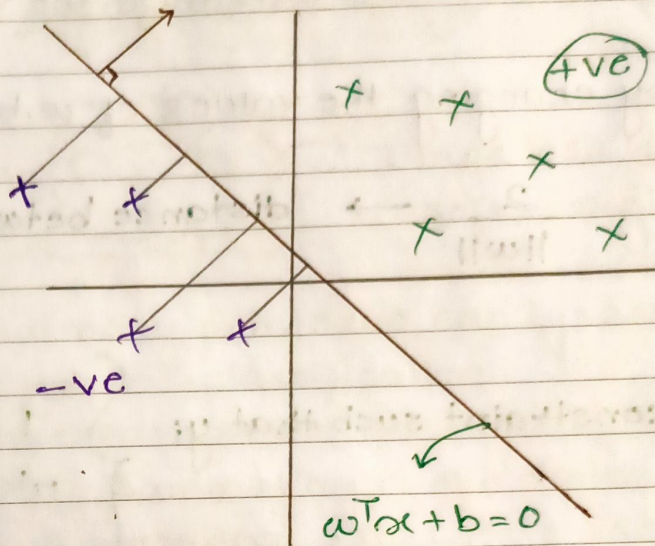 +ve
-ve
ωᵀx + b = 0